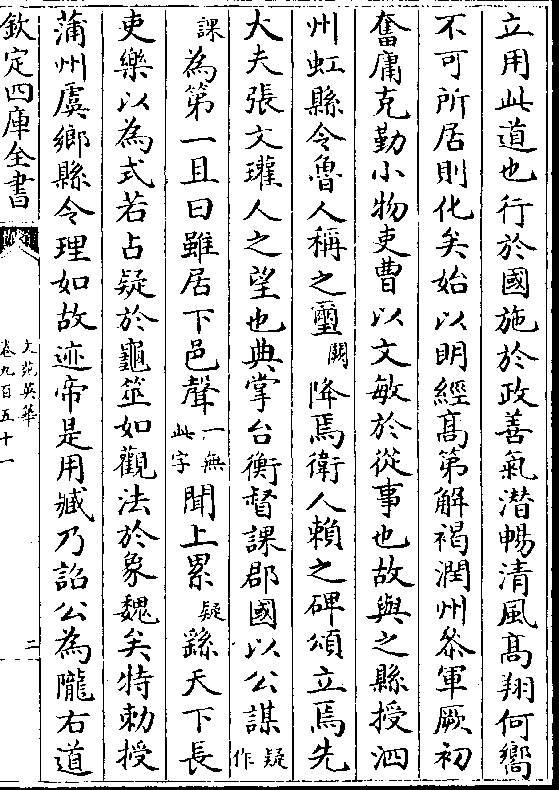 立用此道也行於國施於政善氣潜暢清風髙翔何嚮
不可所居則化矣始以明經髙第解褐潤州叅軍厥初
奮庸克勤小物吏曹以文敏於從事也故與之縣授泗
州虹縣令魯人稱之璽闕降焉衛人賴之碑頌立焉先
大夫張文瓘人之望也典掌台衡督課郡國以公謀疑作
課為第一且曰雖居下邑聲一無此字聞上累疑繇天下長
吏樂以為式若占疑於龜筮如觀法於象魏矣特勅授
蒲州虞鄉縣令理如故迹帝是用臧乃詔公為隴右道
欽定四庫全書
文苑英華
卷九百五十一
二